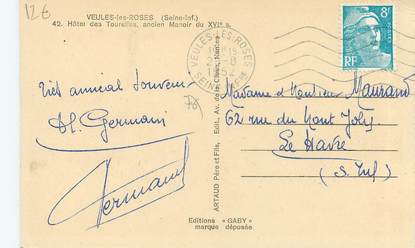 12€
VEULES-les-ROSES (Seine-Inf.)
42. Hôtel des Tourelles, ancien Manoir du XVIe s.
VEULES-LES-ROSES
1952
8F
POSTES
RF
Très amical souvenir
Germain
Germain
ARTAUD Père et Fils, Edit., Av. de la Close, Nantes
Editions « GABY »
marque déposée
Madame et Monsieur Maurand
62 rue du Mont Joly
Le Havre
(S. Inf)